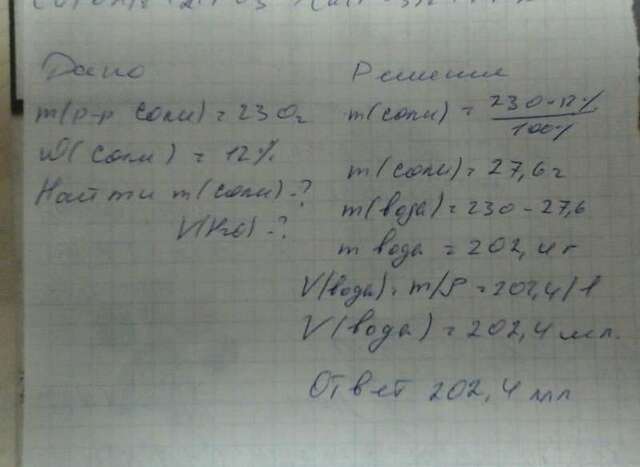 Дано
m(р-р соли) = 230г
ω(соли) = 12%
Найти m(соли)-?
V(H2O)-?
Решение
m(соли) = 230·12% / 100%
m(соли) = 27,6г
m(вода) = 230 - 27,6
m вода = 202,4г
V(вода) = m/ρ = 202,4/1
V(вода) = 202,4 мл.
Ответ 202,4 мл